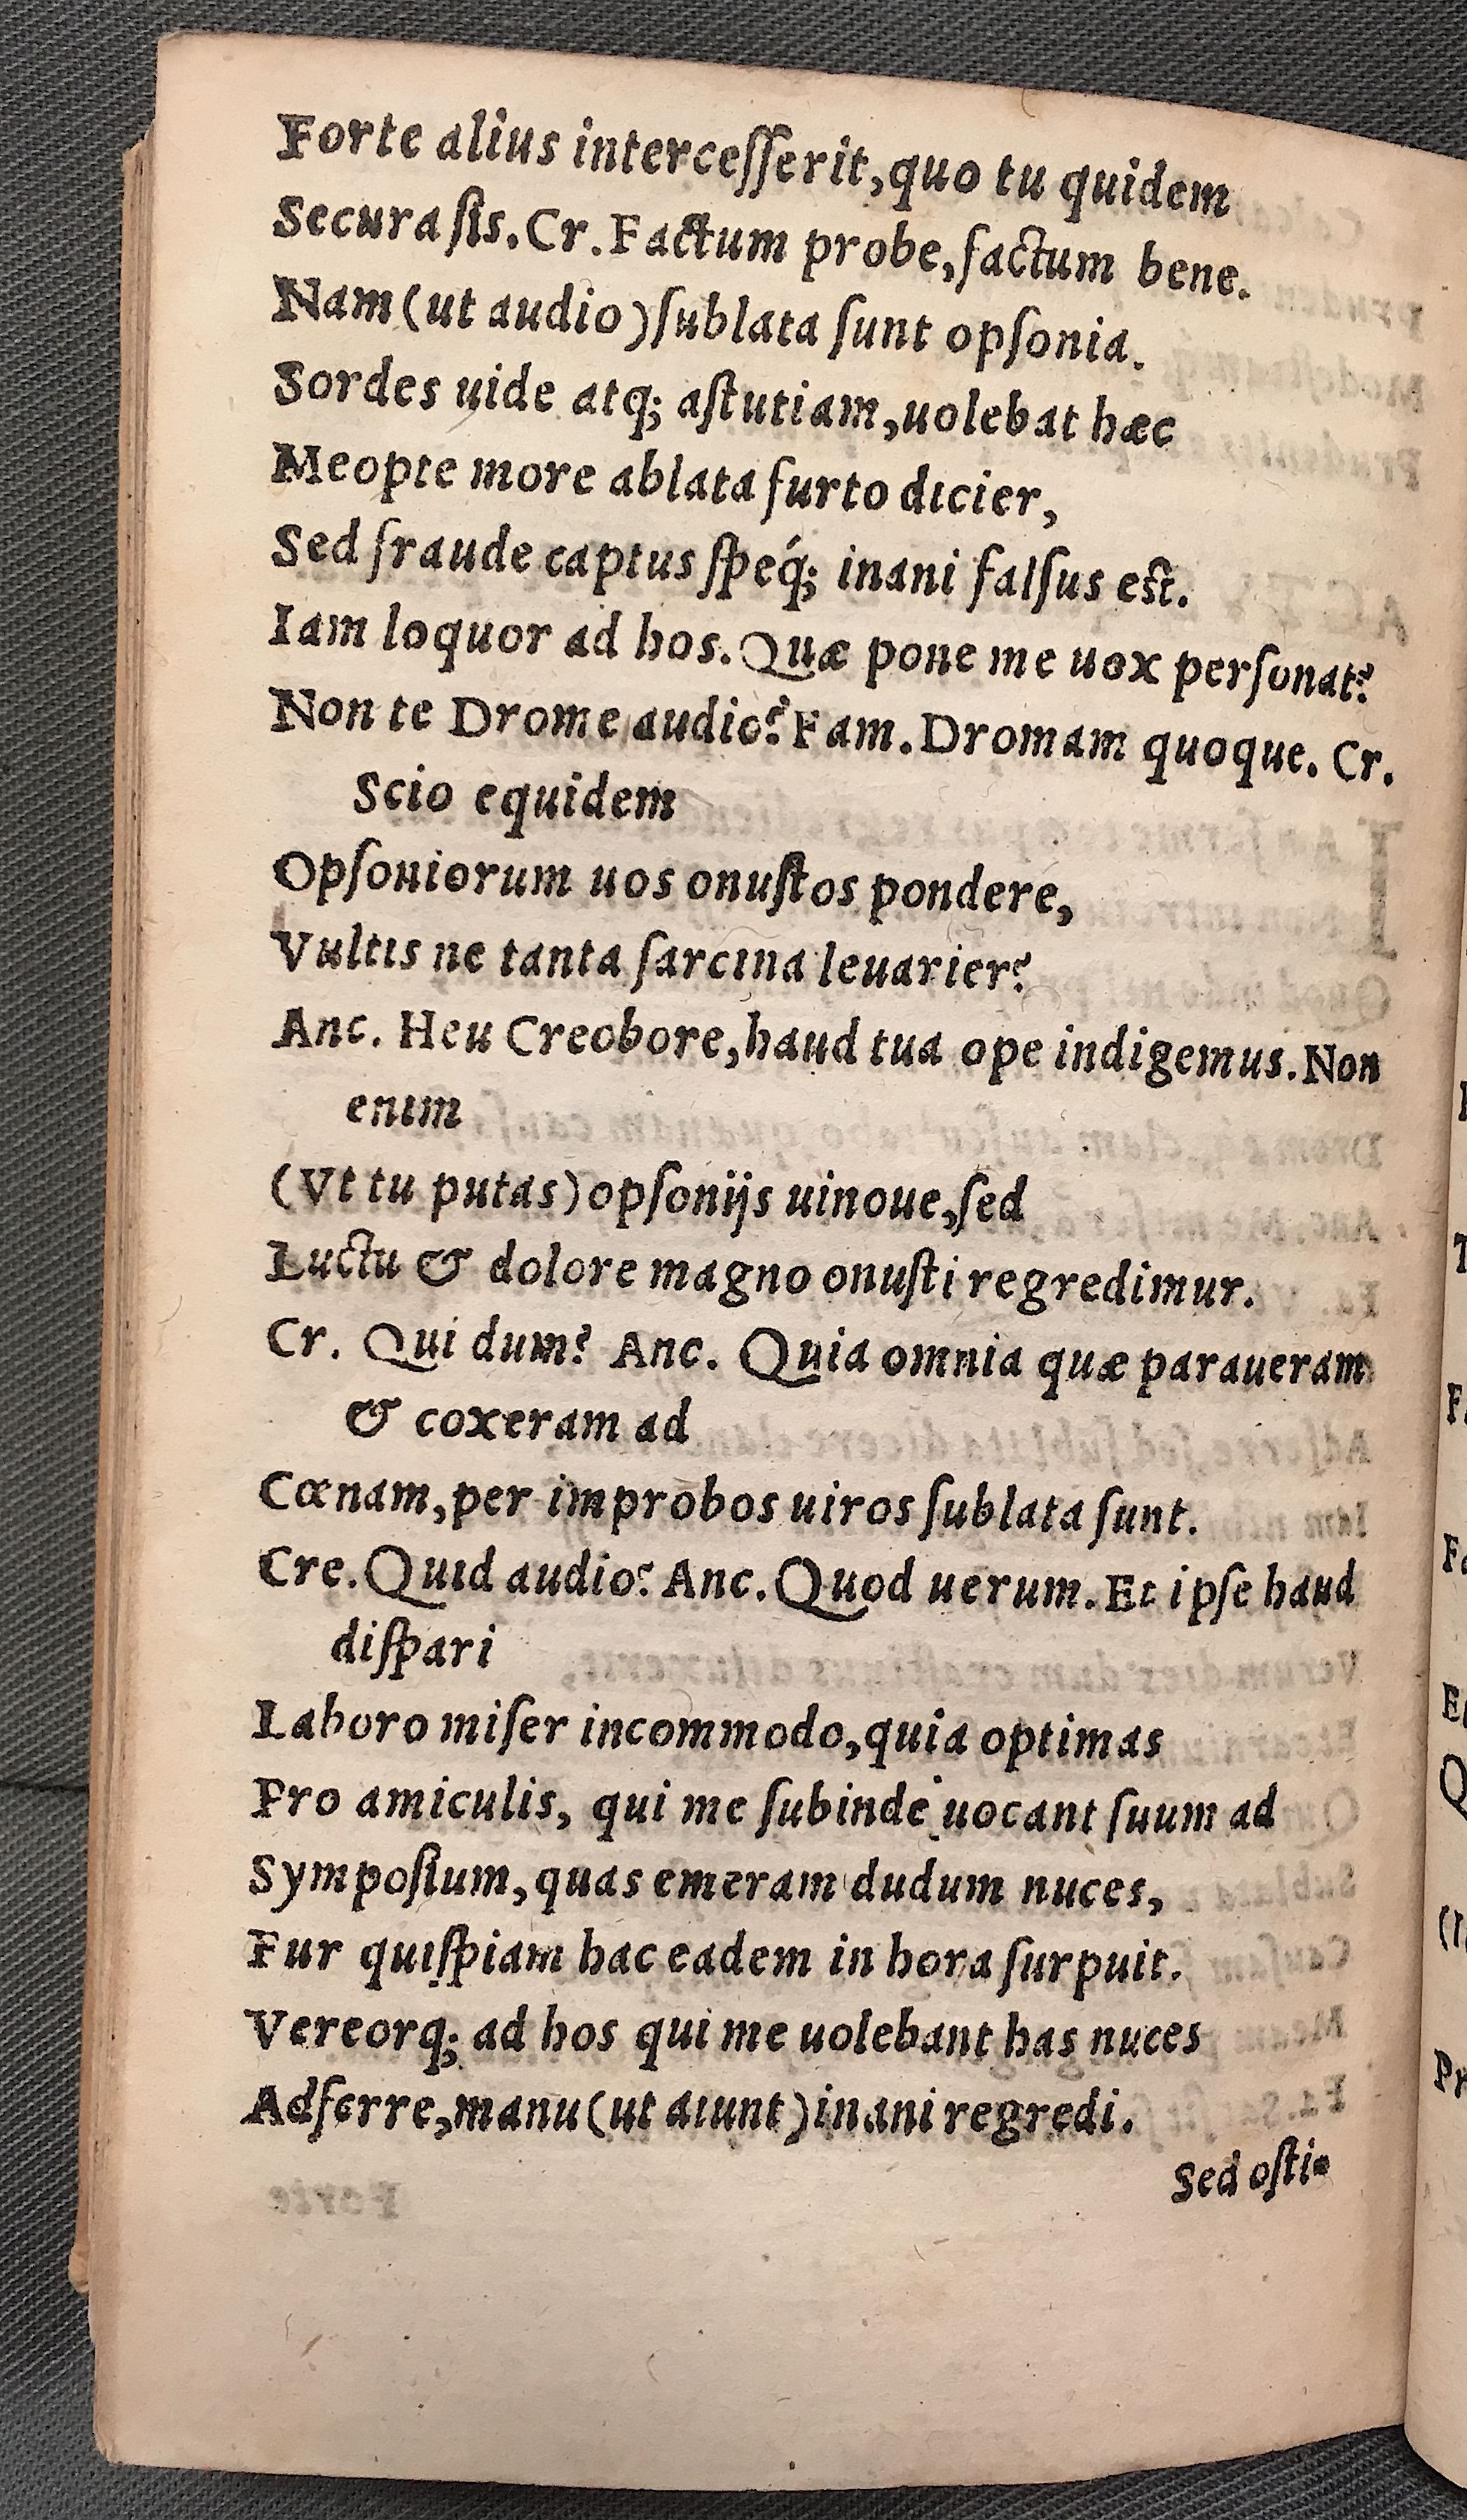 Forte alius interceſſerit, quo tu quidem
Secura ſis. Cr. Factum probe, factum bene.
Nam (ut audio) ſublata ſunt opſonia.
Sordes uide atq; aſtutiam, uolebat hæc
Meopte more ablata furto dicier,
Sed fraude captus ſpeq́; inani falſus eſt.
Iam loquor ad hos. Quæ pone me uox perſonat?
Non te Drome audio? Fam. Dromam quoque. Cr.
Scio equidem
Opſoniorum uos onuſtos pondere,
Vultis ne tanta ſarcina leuarier?
Anc. Heu Creobore, haud tua ope indigemus. Non
enim
(Vt tu putas) opſonijs uinoue, ſed
Luctu & dolore magno onuſti regredimur.
Cr. Qui dum? Anc. Quia omnia quæ paraueram
& coxeram ad
Cœnam, per improbos uiros ſublata ſunt.
Cre. Quid audio? Anc. Quod uerum. Et ipſe haud
diſpari
Laboro miſer incommodo, quia optimas
Pro amiculis, qui me ſubinde uocant ſuum ad
Sympoſium, quas emeram dudum nuces,
Fur quiſpiam hac eadem in hora ſurpuit.
Vereorq; ad hos qui me uolebant has nuces
Adferre, manu (ut aiunt) inani regredi.
Sed oſti-